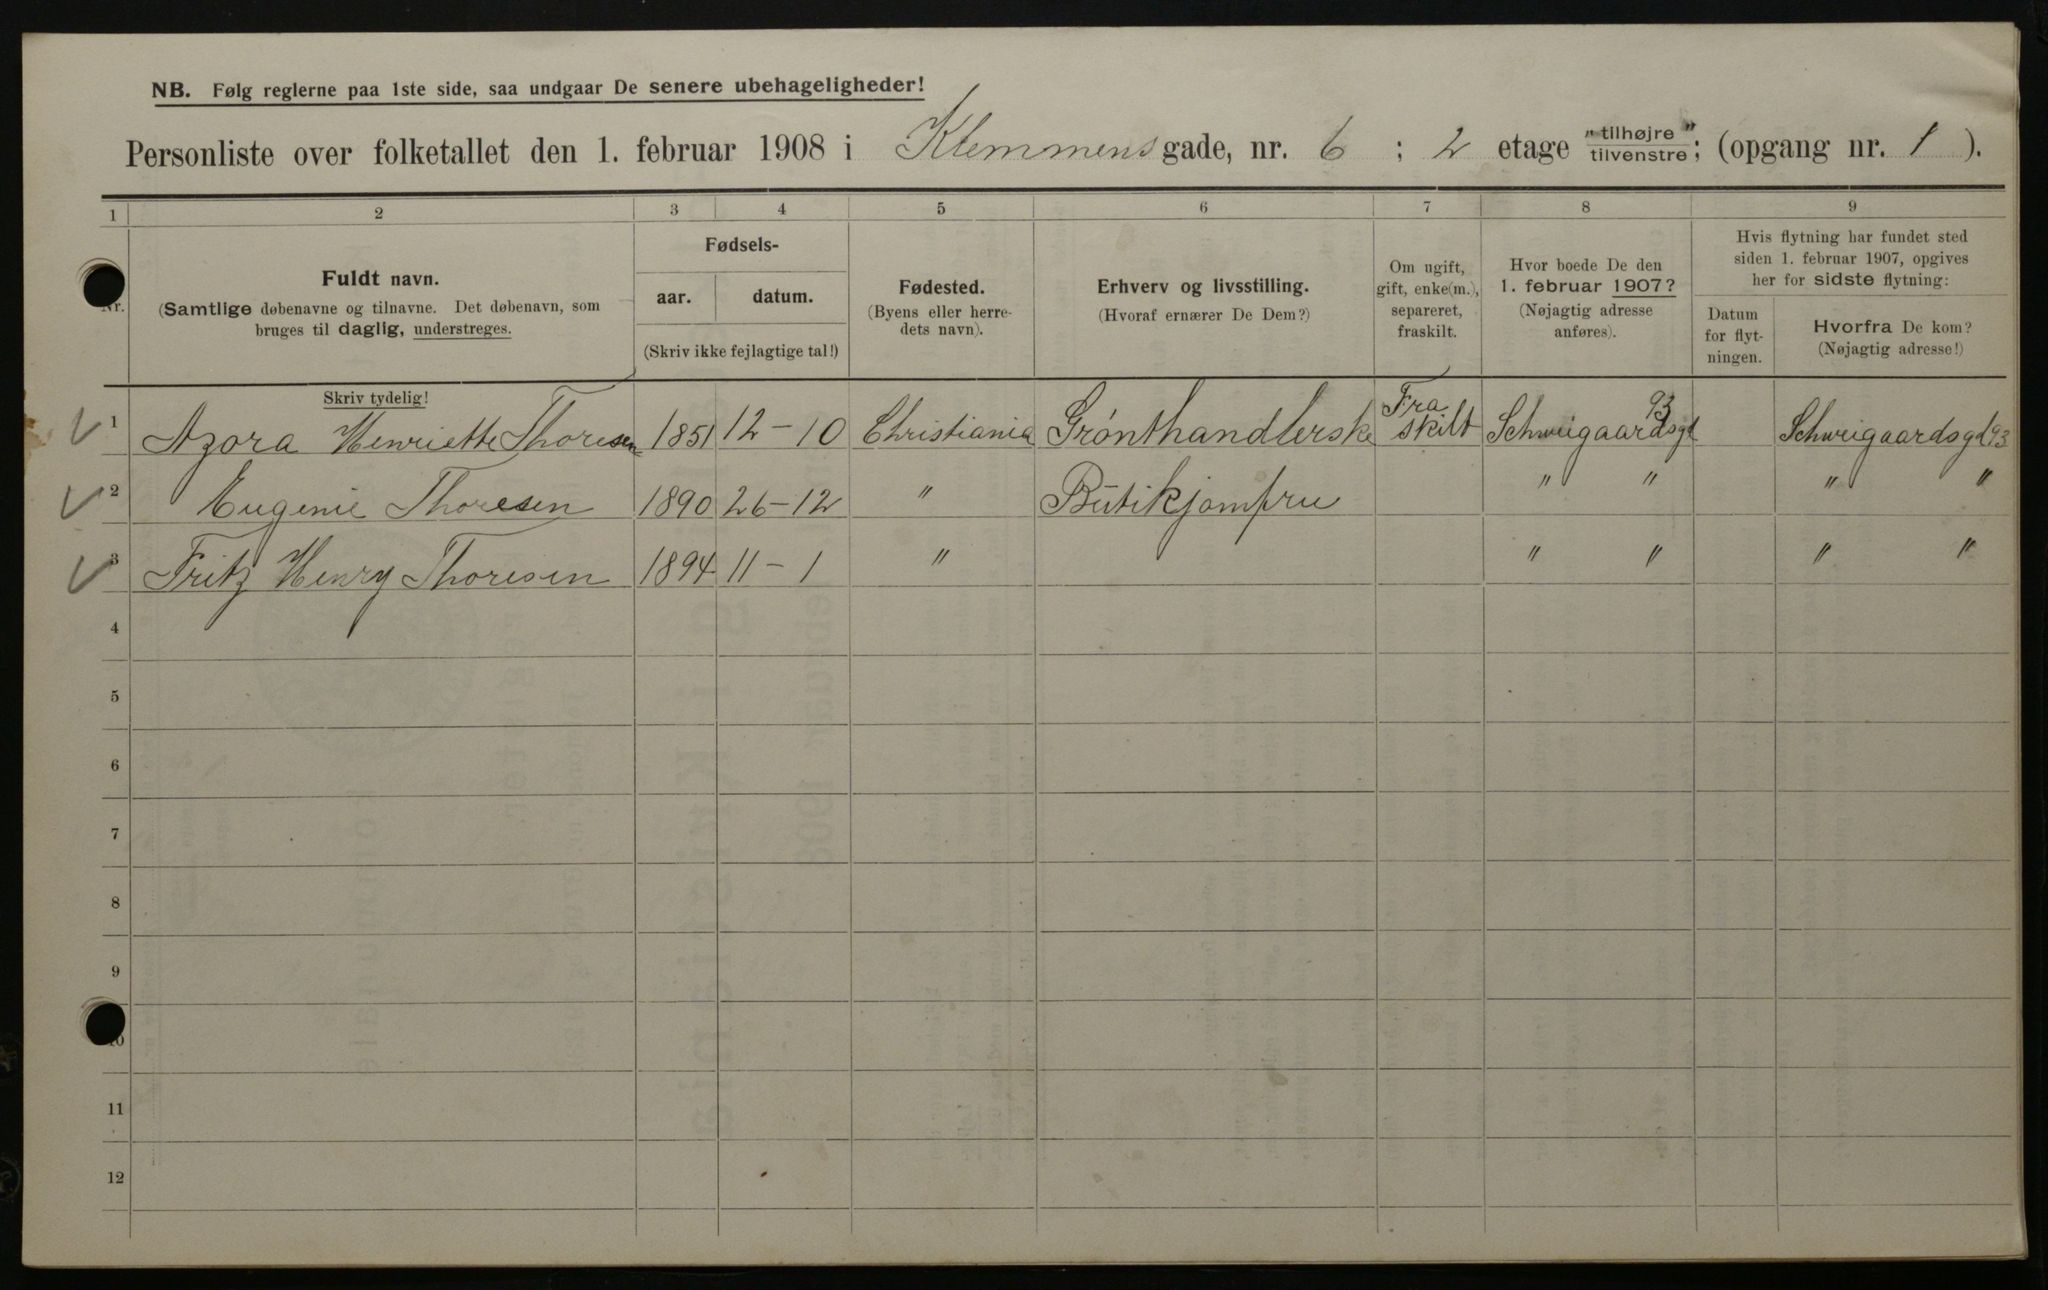 NB. Følg reglerne paa 1ste side, saa undgaar De senere ubehageligheder!
Personliste over folketallet den 1. februar 1908 i Klemmens gade, nr. 6 ; 2 etage „tilhøjre” tilvenstre; (opgang nr. 1 ).
1 2 3 4 5 6 7 8 9
Nr.
Fuldt navn.
(Samtlige døbenavne og tilnavne. Det døbenavn, som
bruges til daglig, understreges.
Fødsels-
aar. datum.
(Skriv ikke fejlagtige tal!)
Fødested.
(Byens eller herre-
dets navn).
Erhverv og livsstilling.
(Hvoraf ernærer De Dem?)
Om ugift,
gift, enke(m.),
separeret,
fraskilt.
Hvor boede De den
1. februar 1907?
(Nøjagtig adresse
anføres).
Hvis flytning har fundet sted
siden 1. februar 1907, opgives
her for sidste flytning:
Datum
for flyt-
ningen.
Hvorfra De kom?
(Nøjagtig adresse!)
Skriv tydelig!
1 Azora Henriette Thoresen 1851 12-10 Christiania Grønthandlerske Fra skilt Schweigaardsgd 93 Schweigaardsgd 93
2 Eugenie Thoresen 1890 26-12 " Butikjomfru " " " "
3 Fritz Henry Thoresen 1894 11-1 " " " " "
4
5
6
7
8
9
10
11
12